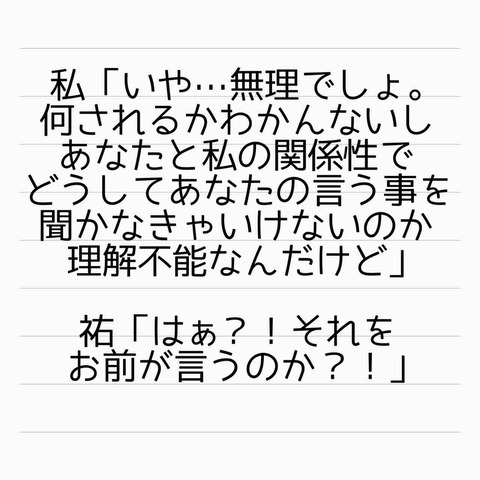 私「いや…無理でしょ。
何されるかわかんないし
あなたと私の関係性で
どうしてあなたの言う事を
聞かなきゃいけないのか
理解不能なんだけど」
祐「はぁ？！それを
お前が言うのか？！」